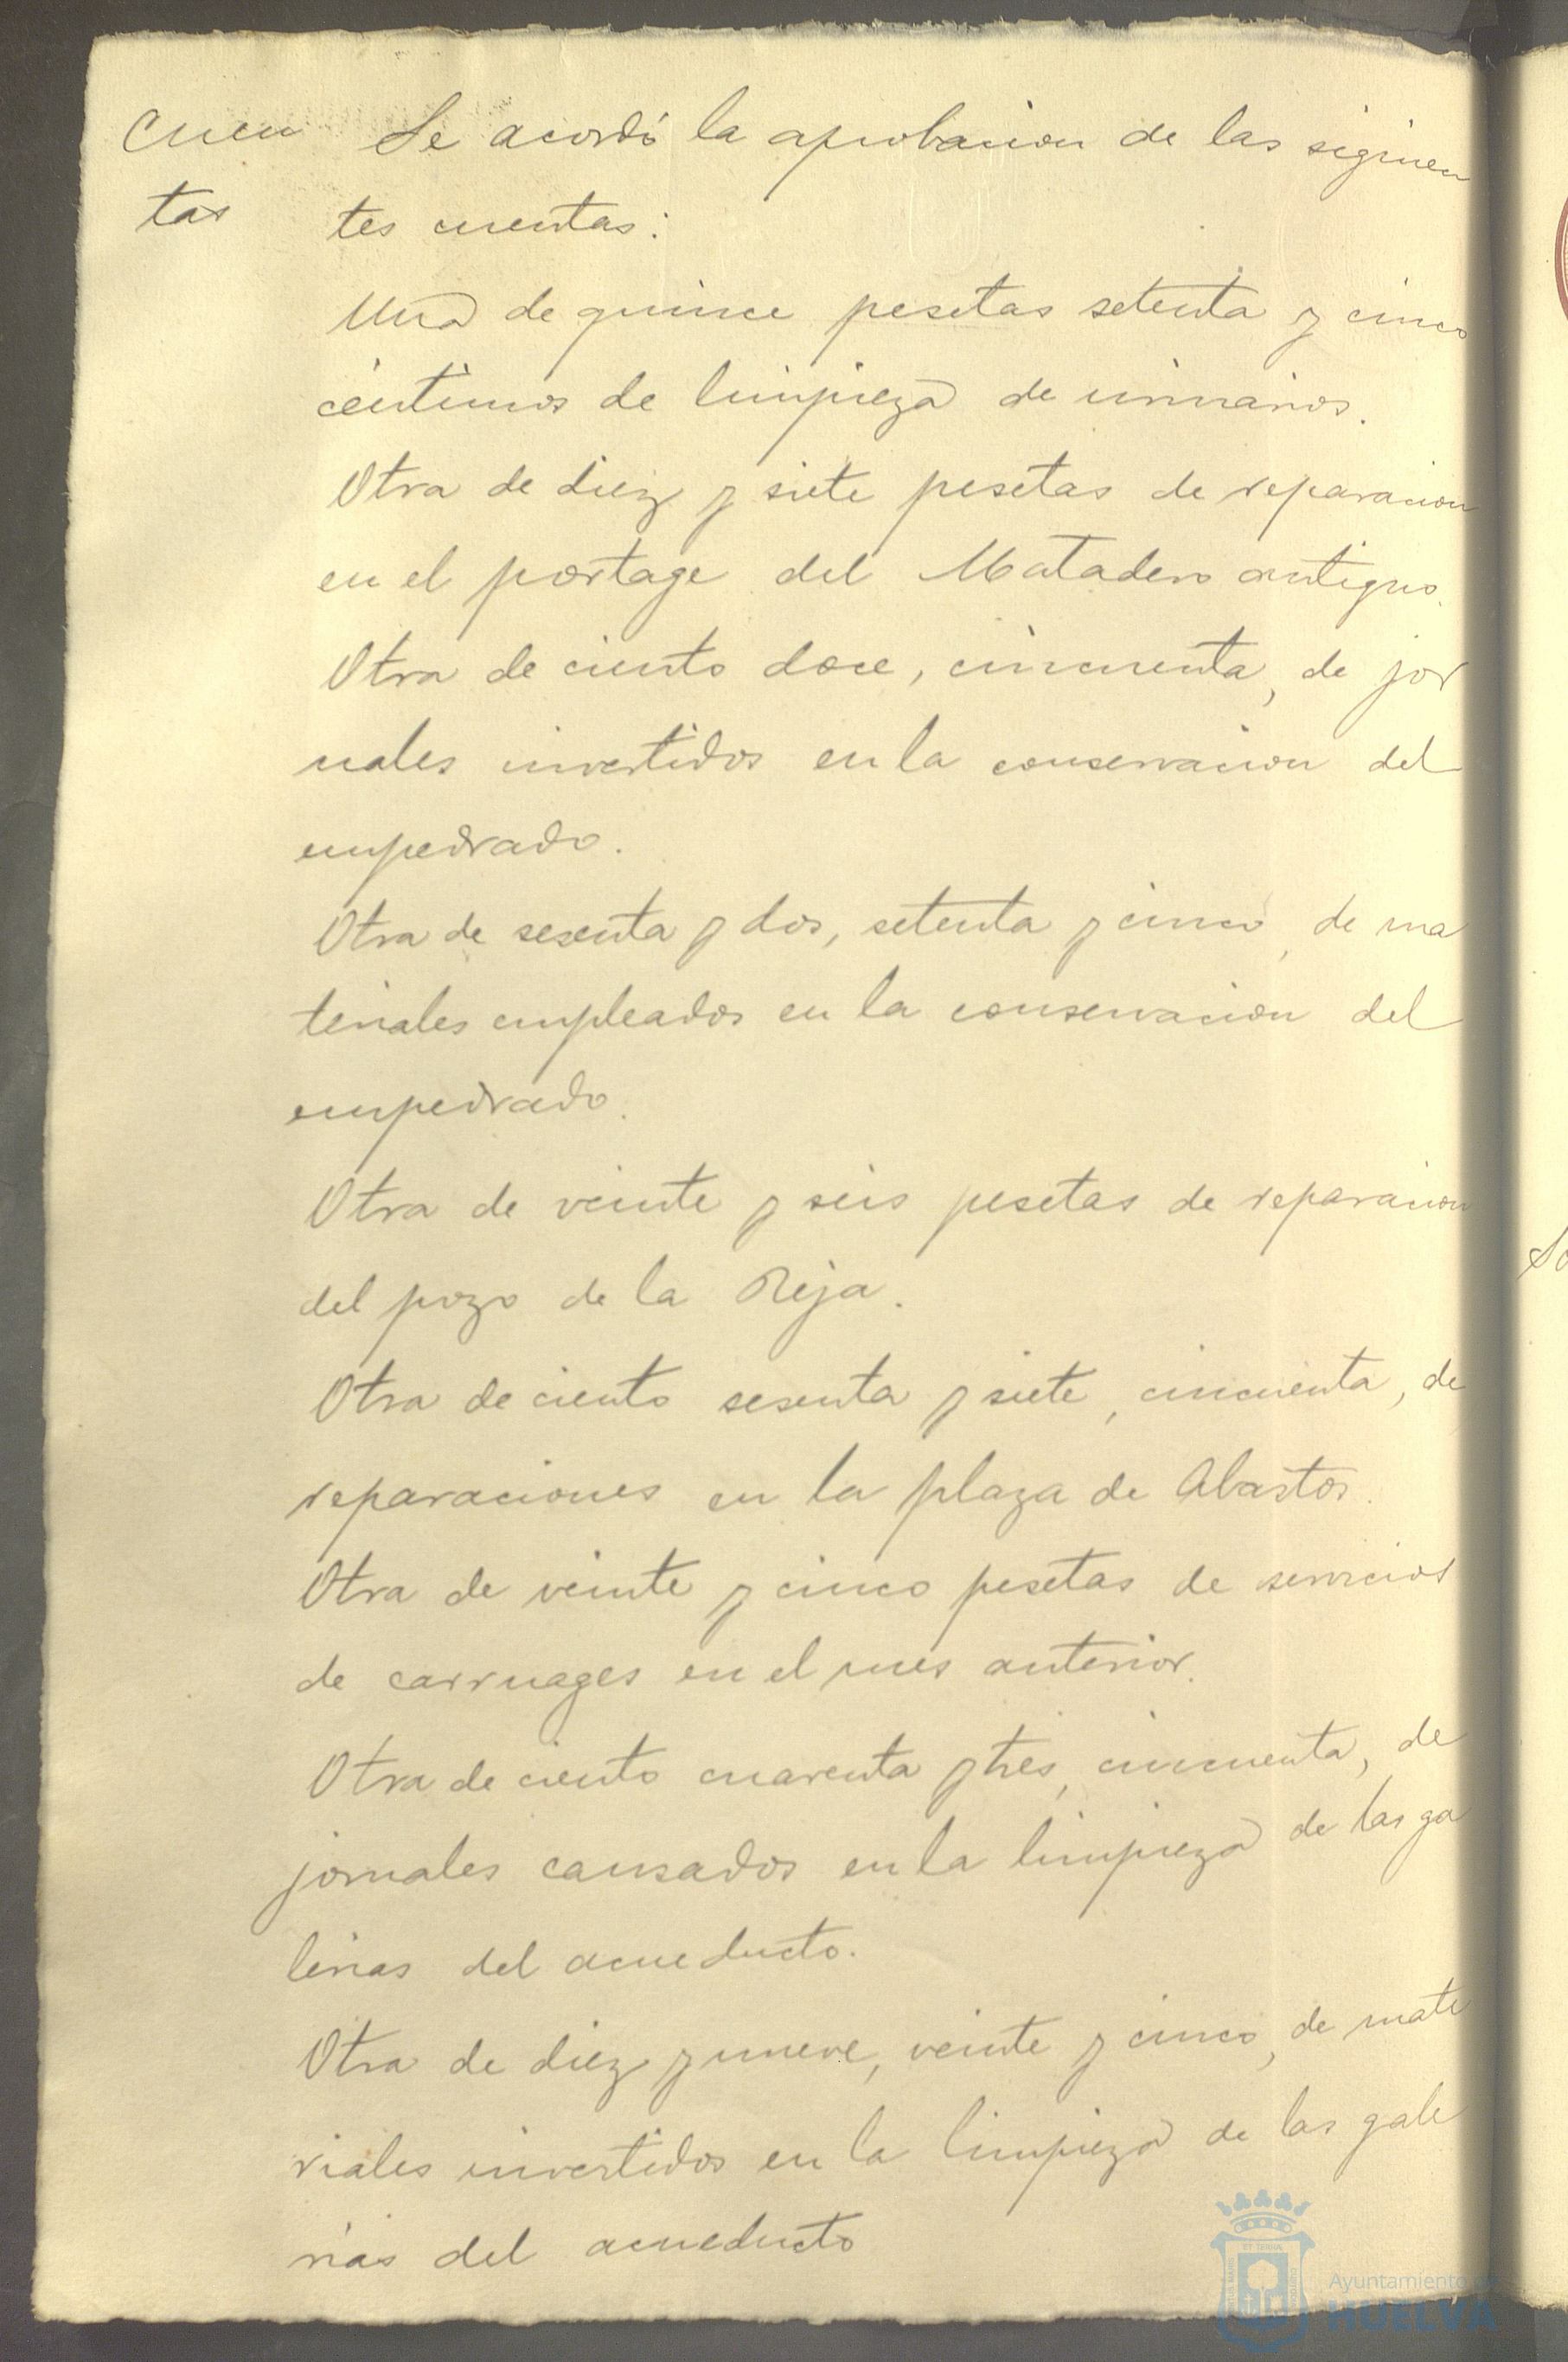 Cuen
tas
Se acordó la aprobacion de las siguien
tes cuentas:
Una de quince pesetas setenta y cinco
céntimos de limpieza de urinarios.
Otra de diez y siete pesetas de reparacion
en el portage del Matadero antiguo.
Otra de ciento doce, cincuenta, de jor
nales invertidos en la conservacion del
empedrado.
Otra de sesenta y dos, setenta y cinco, de ma
teriales empleados en la conservacion del
empedrado.
Otra de veinte y seis pesetas de reparacion
del pozo de la Reja.
Otra de ciento sesenta y siete, cincuenta, de
reparaciones en la plaza de Abastos.
Otra de veinte y cinco pesetas de servicios
de carruages en el mes anterior.
Otra de ciento cuarenta y tres, cincuenta, de
jornales causados en la limpieza de las ga
lerias del acueducto.
Otra de diez y nueve, veinte y cinco, de mate
riales invertidos en la limpieza de las gale
rias del acueducto
Ayuntamiento de
HUELVA